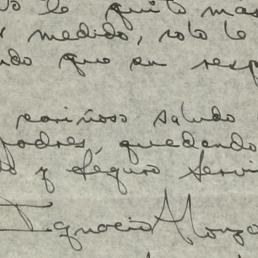 le quito mas
medido, solo le
ndo que en resp
cariñoso saludo
padres, quedando
o y seguro servi
Ignacio Alonzo